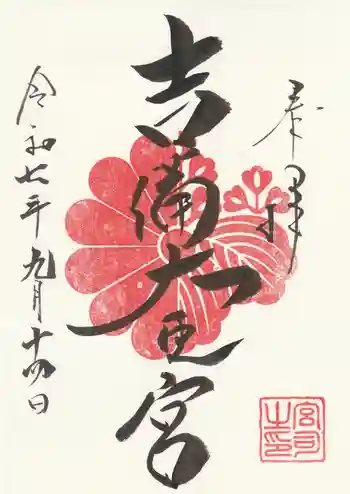 奉拝
吉備大臣宮
令和七年九月十四日
宮司之印